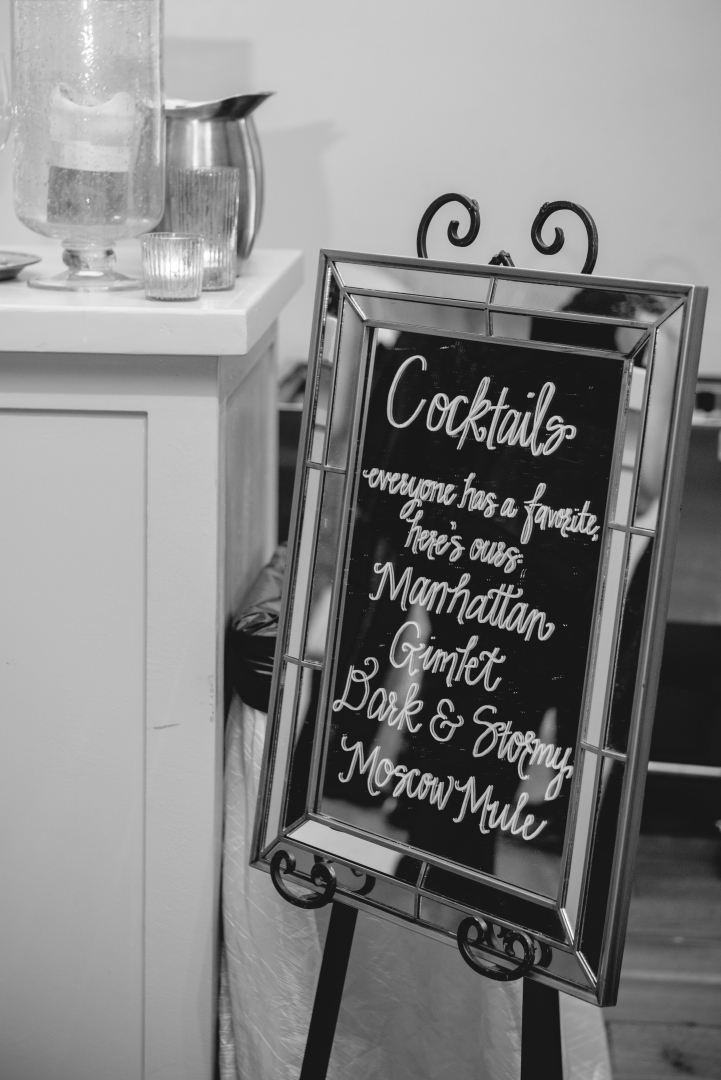 Cocktails
everyone has a favorite,
here's ours:
Manhattan
Gimlet
Bark & Stormy
Moscow Mule